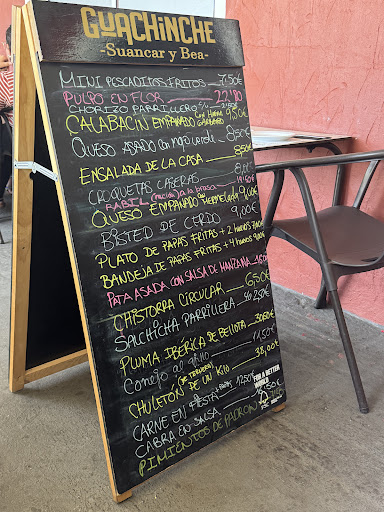 GUACHINCHE
-Suancar y Bea-
MINI PESCADITOS FRITOS 7,50€
PULPO EN FLOR 22'80
CHORIZO PARRILLERO
CALABACÍN EMPANADO con Harina GARBANZO 9,50€
QUESO ASADO con mojo verde 8,50€
ENSALADA DE LA CASA 8,50€
CROQUETAS CASERAS 8,00€
RABIL a la brasa 14'50€
QUESO EMPANADO con mermelada 9,00€
BISTED DE CERDO 9,00€
PLATO DE PAPAS FRITAS + 2 huevos
BANDEJA DE PAPAS FRITAS + 4 huevos 9,00€
PATA ASADA CON SALSA DE MANZANA
CHISTORRA CIRCULAR 6,50€
SALCHICHA PARRILLERA
PLUMA IBÉRICA DE BELLOTA
Conejo al ajillo 11,50€
CHULETÓN DE UN KILO (de TERNERA) 38,00€
CARNE EN FIESTA + PAPAS 12,50€
CABRA EN SALSA
PIMIENTOS DE PADRON
FOR A BETTER WORLD